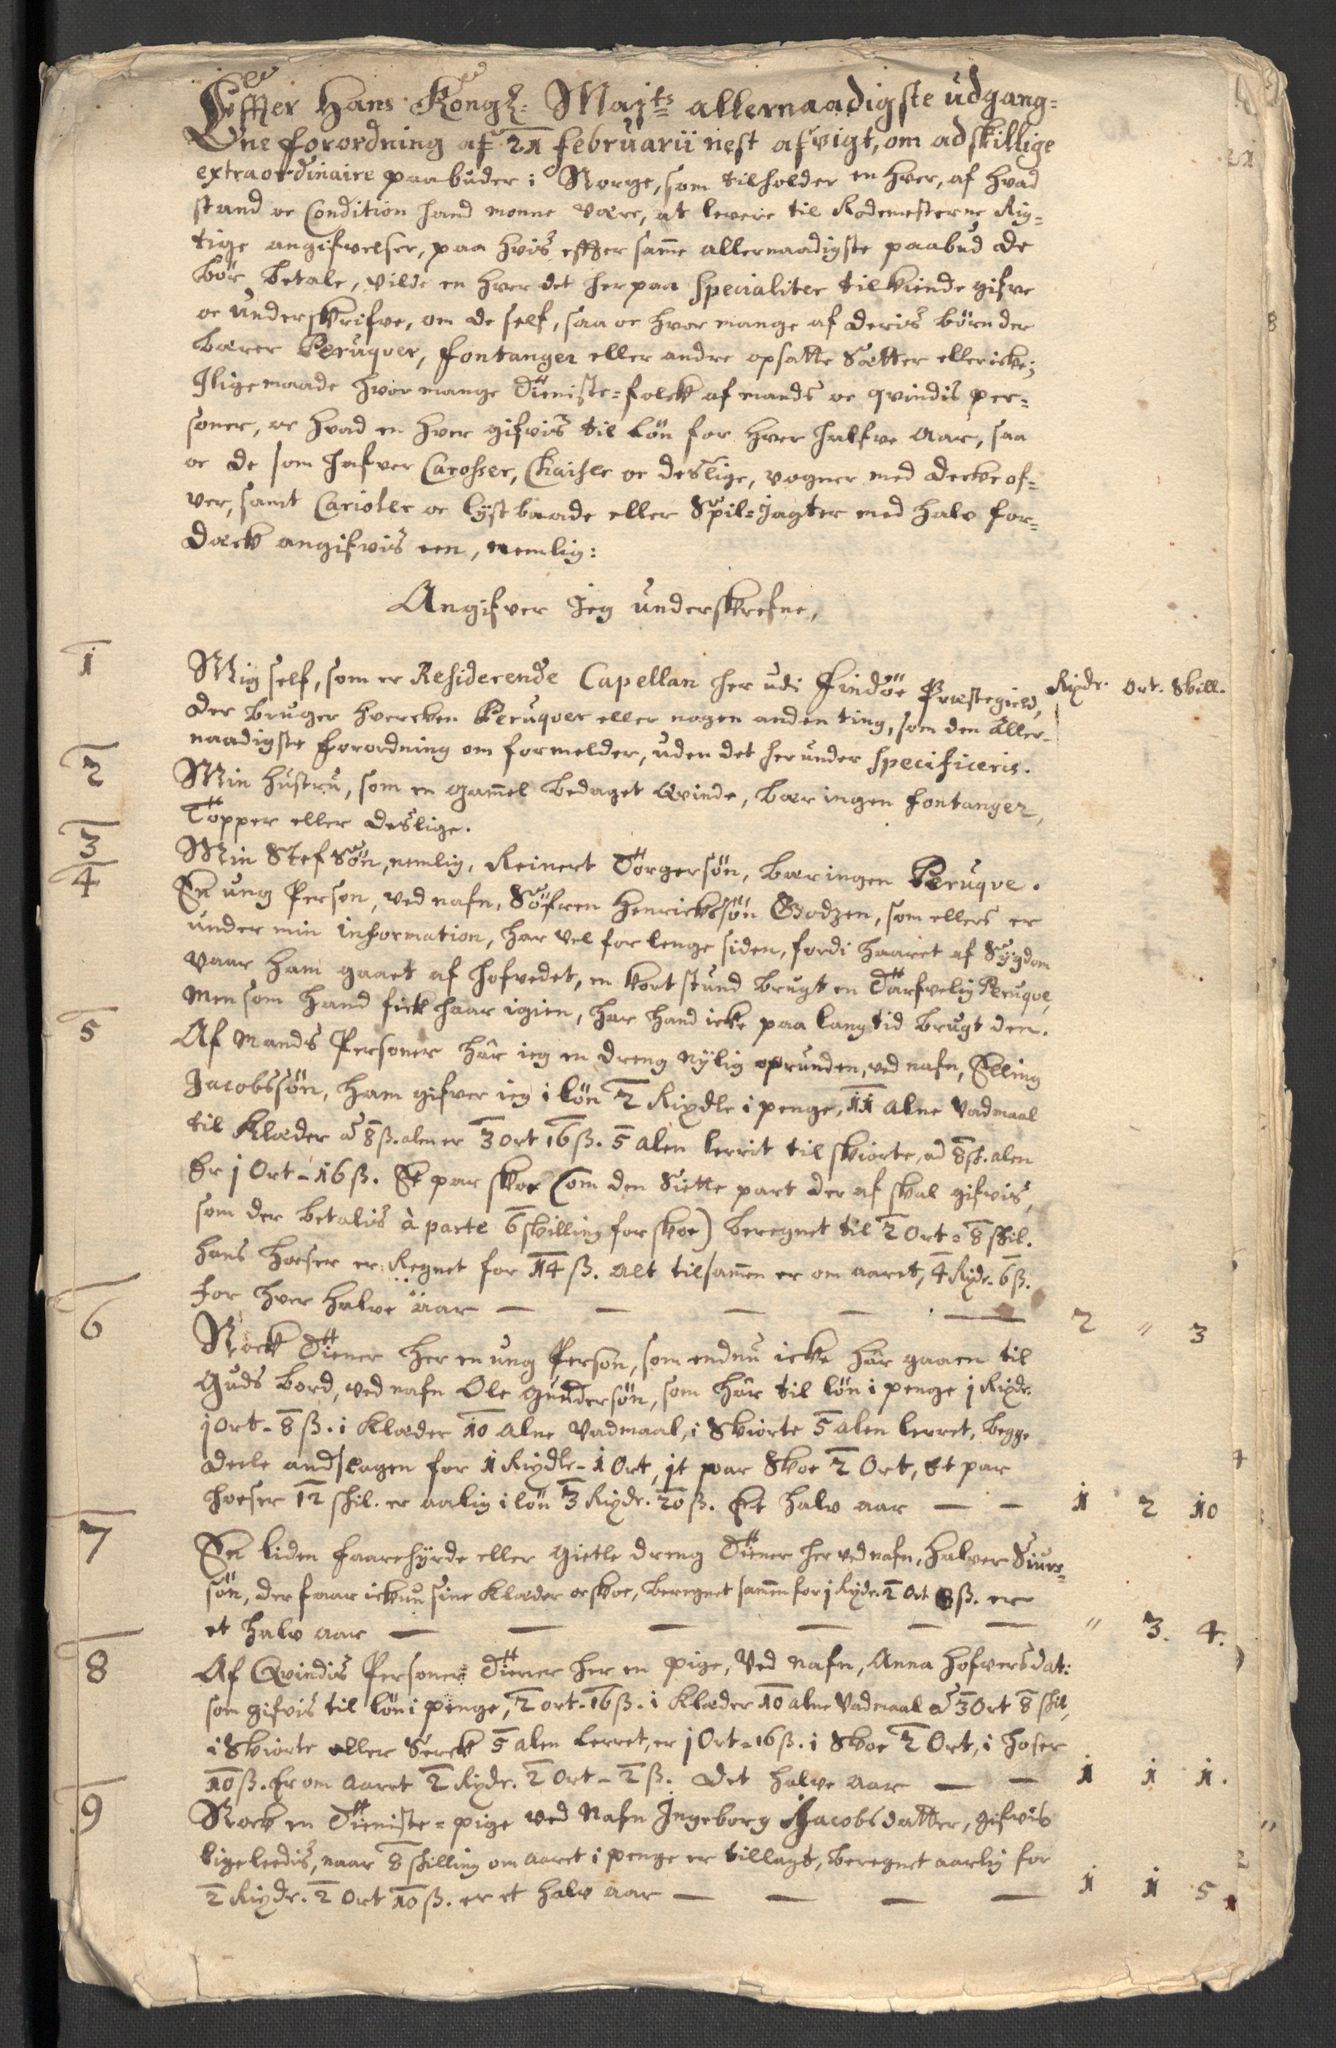 Effter Hans Kongl: Maj:ts allernaadigste udgang-
ne forordning af 21 februarii nest afvigt, om adskillige
extraordinaire paabuder i Norge, som tilholder en hver, af hvad
stand oc Condition hand monne være, at levere til Rodemesterne Rig-
tige angifvelser, paa hvis effter samme allernaadigste paabud de
bør betale, vilde en hver det her paa Specialiter tilkiende gifve
oc underskrifve, om de self, saa oc hvor mange af deris børn der
bærer Peruqver, fontanger eller andre opsatte Sætter eller icke;
Iligemaade hvor mange Tieniste-folck af mands oc qvindis per-
soner, oc hvad en hver gifvis til løn for hver halfve aar, saa
oc de som hafver Carosser, Chaiser oc deslige, vogner med decke of-
ver, samt Carioler oc lyst baade eller Spil-jagter med halv for-
dæck angifvis een, nemlig:
Angifver Jeg underskrefne,
Rixdr. Ort. Skill.
1 Mig self, som er Residerende Capellan her udi Findøe Præstegield,
der bruger hvercken Peruqver eller nogen anden ting, som den aller-
naadigste forordning om formelder, uden det her under specificeris.
2 Min hustru, som en gammel bedaget qvinde, bær ingen fontanger,
Topper eller deslige.
3 Min Stef Søn, nemlig, Reinert Torgersøn, bær ingen Peruqve.
4 En ung Person, ved nafn, Søfren Henrickssøn Godzen, som ellers er
under min information, har vel for lenge siden, fordi haaret af Sygdom
vaar ham gaaet af hofvedet, en kort stund brugt en Tarfvelig Peruqve,
Men som hand fick haar igien, har hand icke paa lang tid brugt den.
5 Af Mands Personer har ieg en dreng nylig oprunden, ved nafn, Elling
Jacobssøn, ham gifver ieg i løn 2 Rixdlr i penge, 11 alne Vadmaal
til Klæder à 8 ß. alen er 3 ort 16 ß. 5 alen lerrit til skiorte, ad 8 sh. alen
Er 1 Ort - 16 ß. Et par skoe (om den Siette part der af skal gifvis,
som der betalis à parte 6 skilling for skoe) beregnet til 2 Ort - 8 skil.
hans hoeser er Regnet for 14 ß. alt tilsammen er om aarit, 4 Rixdr. 6 ß.
for hver halve aar — — — — — 2 " 3
6 Nock Tiener her en ung Person, som endnu icke har gaaen til
Guds bord, ved nafn Ole Gundersøn, som har til løn i penge 1 Rixdr.
1 ort - 8 ß. i Klæder 10 alne Vadmaal, i Skiorte 5 alen lerret, begge
deele andslagen for 1 Rixdlr - 1 Ort, it par Skoe 2 Ort, Et par
hoeser 12 skil. er aarlig i løn 3 Rixdr. 20 ß. Et halv aar — — 1 2 10
7 En liden faarehyrde eller gietle dreng Tiener her ved nafn, Halver Siurs-
søn, der faar ickun sine Klæder oc skoe, beregnet sammen for 1 Rixdr. 2 Ort 8 ß. er
et halv aar — — — — — — " 3. 4.
8 Af Qvindis Personer Tiener her en pige, Ved nafn, Anna Hofversdat:
som gifvis til løn i penge, 2 ort - 16 ß. i Klæder 10 alne Vadmaal à 3 Ort 8 skil,
i Skiorte eller Serck 5 alen lerret, er 1 Ort - 16 ß. i Skoe 2 Ort, i hoser
10 ß. Er om aaret 2 Rixdr. 2 Ort - 2 ß. Det halve aar — — 1 1 1.
9 Nock en Tieniste-pige ved Nafn Ingeborg Jacobsdatter, gifvis
ligeleedis, naar 8 skilling om aaret i penge er tillagt, beregnet aarlig for
2 Rixdr. 2 Ort 10 ß. er et halv aar — — — — 1 1 5